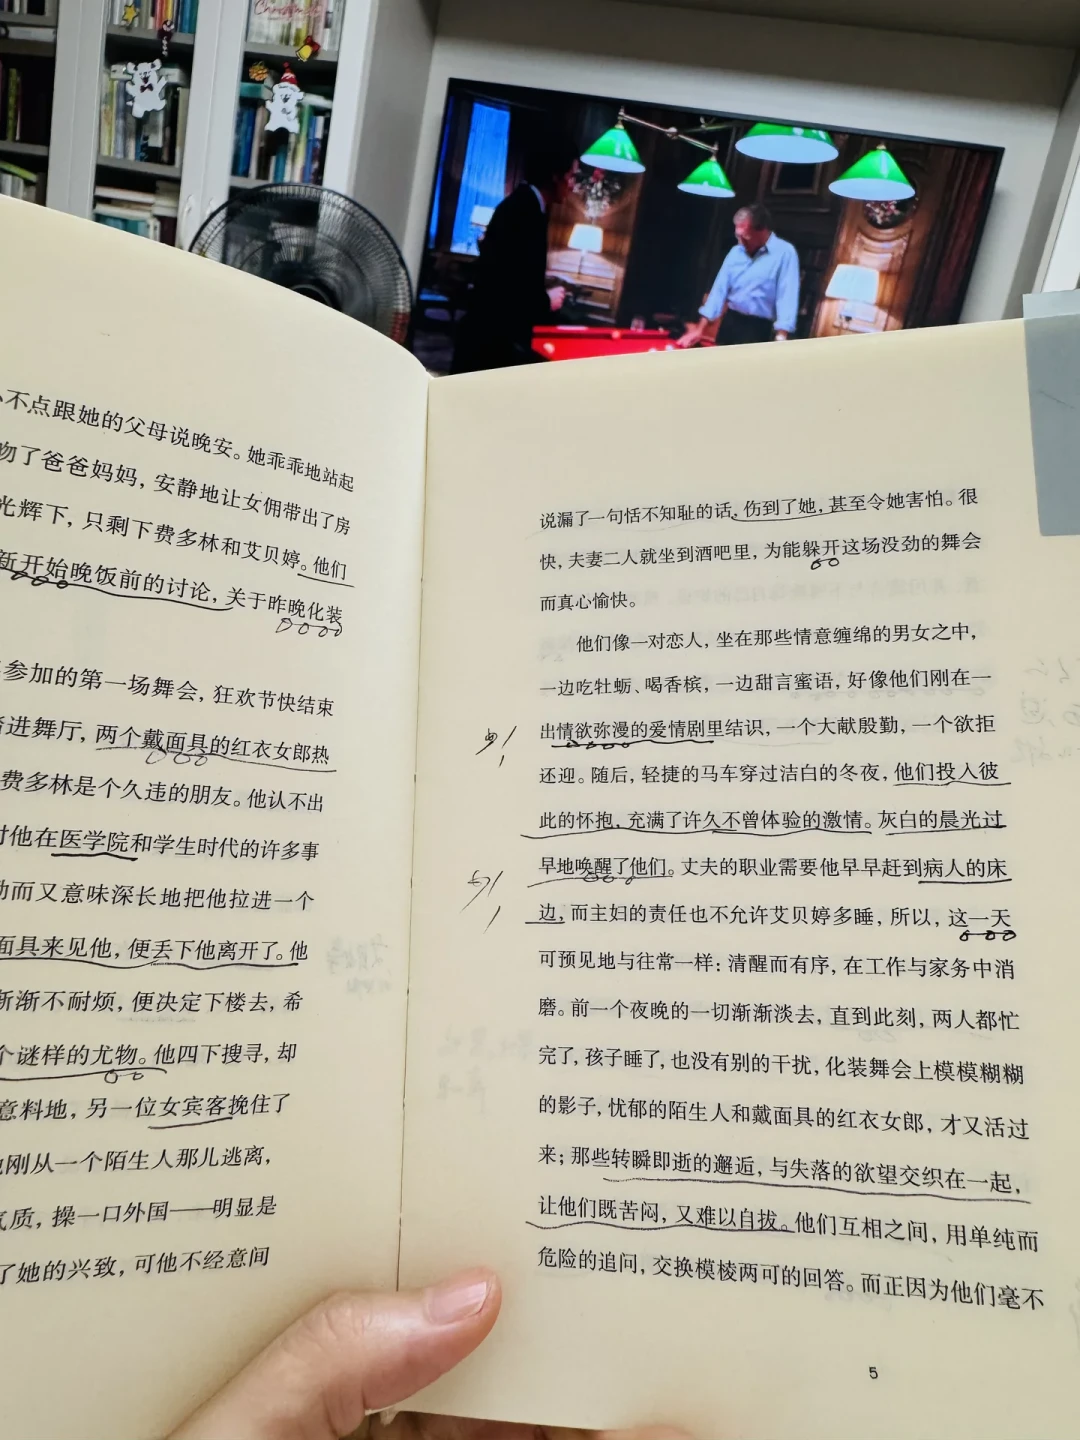 Christmas
不点跟她的父母说晚安。她乖乖地站起
吻了爸爸妈妈，安静地让女佣带出了房
光辉下，只剩下费多林和艾贝婷。他们
新开始晚饭前的讨论，关于昨晚化装
参加的第一场舞会，狂欢节快结束
进舞厅，两个戴面具的红衣女郎热
费多林是个久违的朋友。他认不出
对他在医学院和学生时代的许多事
而又意味深长地把他拉进一个
面具来见他，便丢下他离开了。他
渐渐不耐烦，便决定下楼去，希
个谜样的尤物。他四下搜寻，却
意料地，另一位女宾客挽住了
刚从一个陌生人那儿逃离，
气质，操一口外国——明显是
了她的兴致，可他不经意间
说漏了一句恬不知耻的话，伤到了她，甚至令她害怕。很
快，夫妻二人就坐到酒吧里，为能躲开这场没劲的舞会
而真心愉快。
他们像一对恋人，坐在那些情意缠绵的男女之中，
一边吃牡蛎、喝香槟，一边甜言蜜语，好像他们刚在一
出情欲弥漫的爱情剧里结识，一个大献殷勤，一个欲拒
还迎。随后，轻捷的马车穿过洁白的冬夜，他们投入彼
此的怀抱，充满了许久不曾体验的激情。灰白的晨光过
早地唤醒了他们。丈夫的职业需要他早早赶到病人的床
边，而主妇的责任也不允许艾贝婷多睡，所以，这一天
可预见地与往常一样：清醒而有序，在工作与家务中消
磨。前一个夜晚的一切渐渐淡去，直到此刻，两人都忙
完了，孩子睡了，也没有别的干扰，化装舞会上模模糊糊
的影子，忧郁的陌生人和戴面具的红衣女郎，才又活过
来；那些转瞬即逝的邂逅，与失落的欲望交织在一起，
让他们既苦闷，又难以自拔。他们互相之间，用单纯而
危险的追问，交换模棱两可的回答。而正因为他们毫不
5